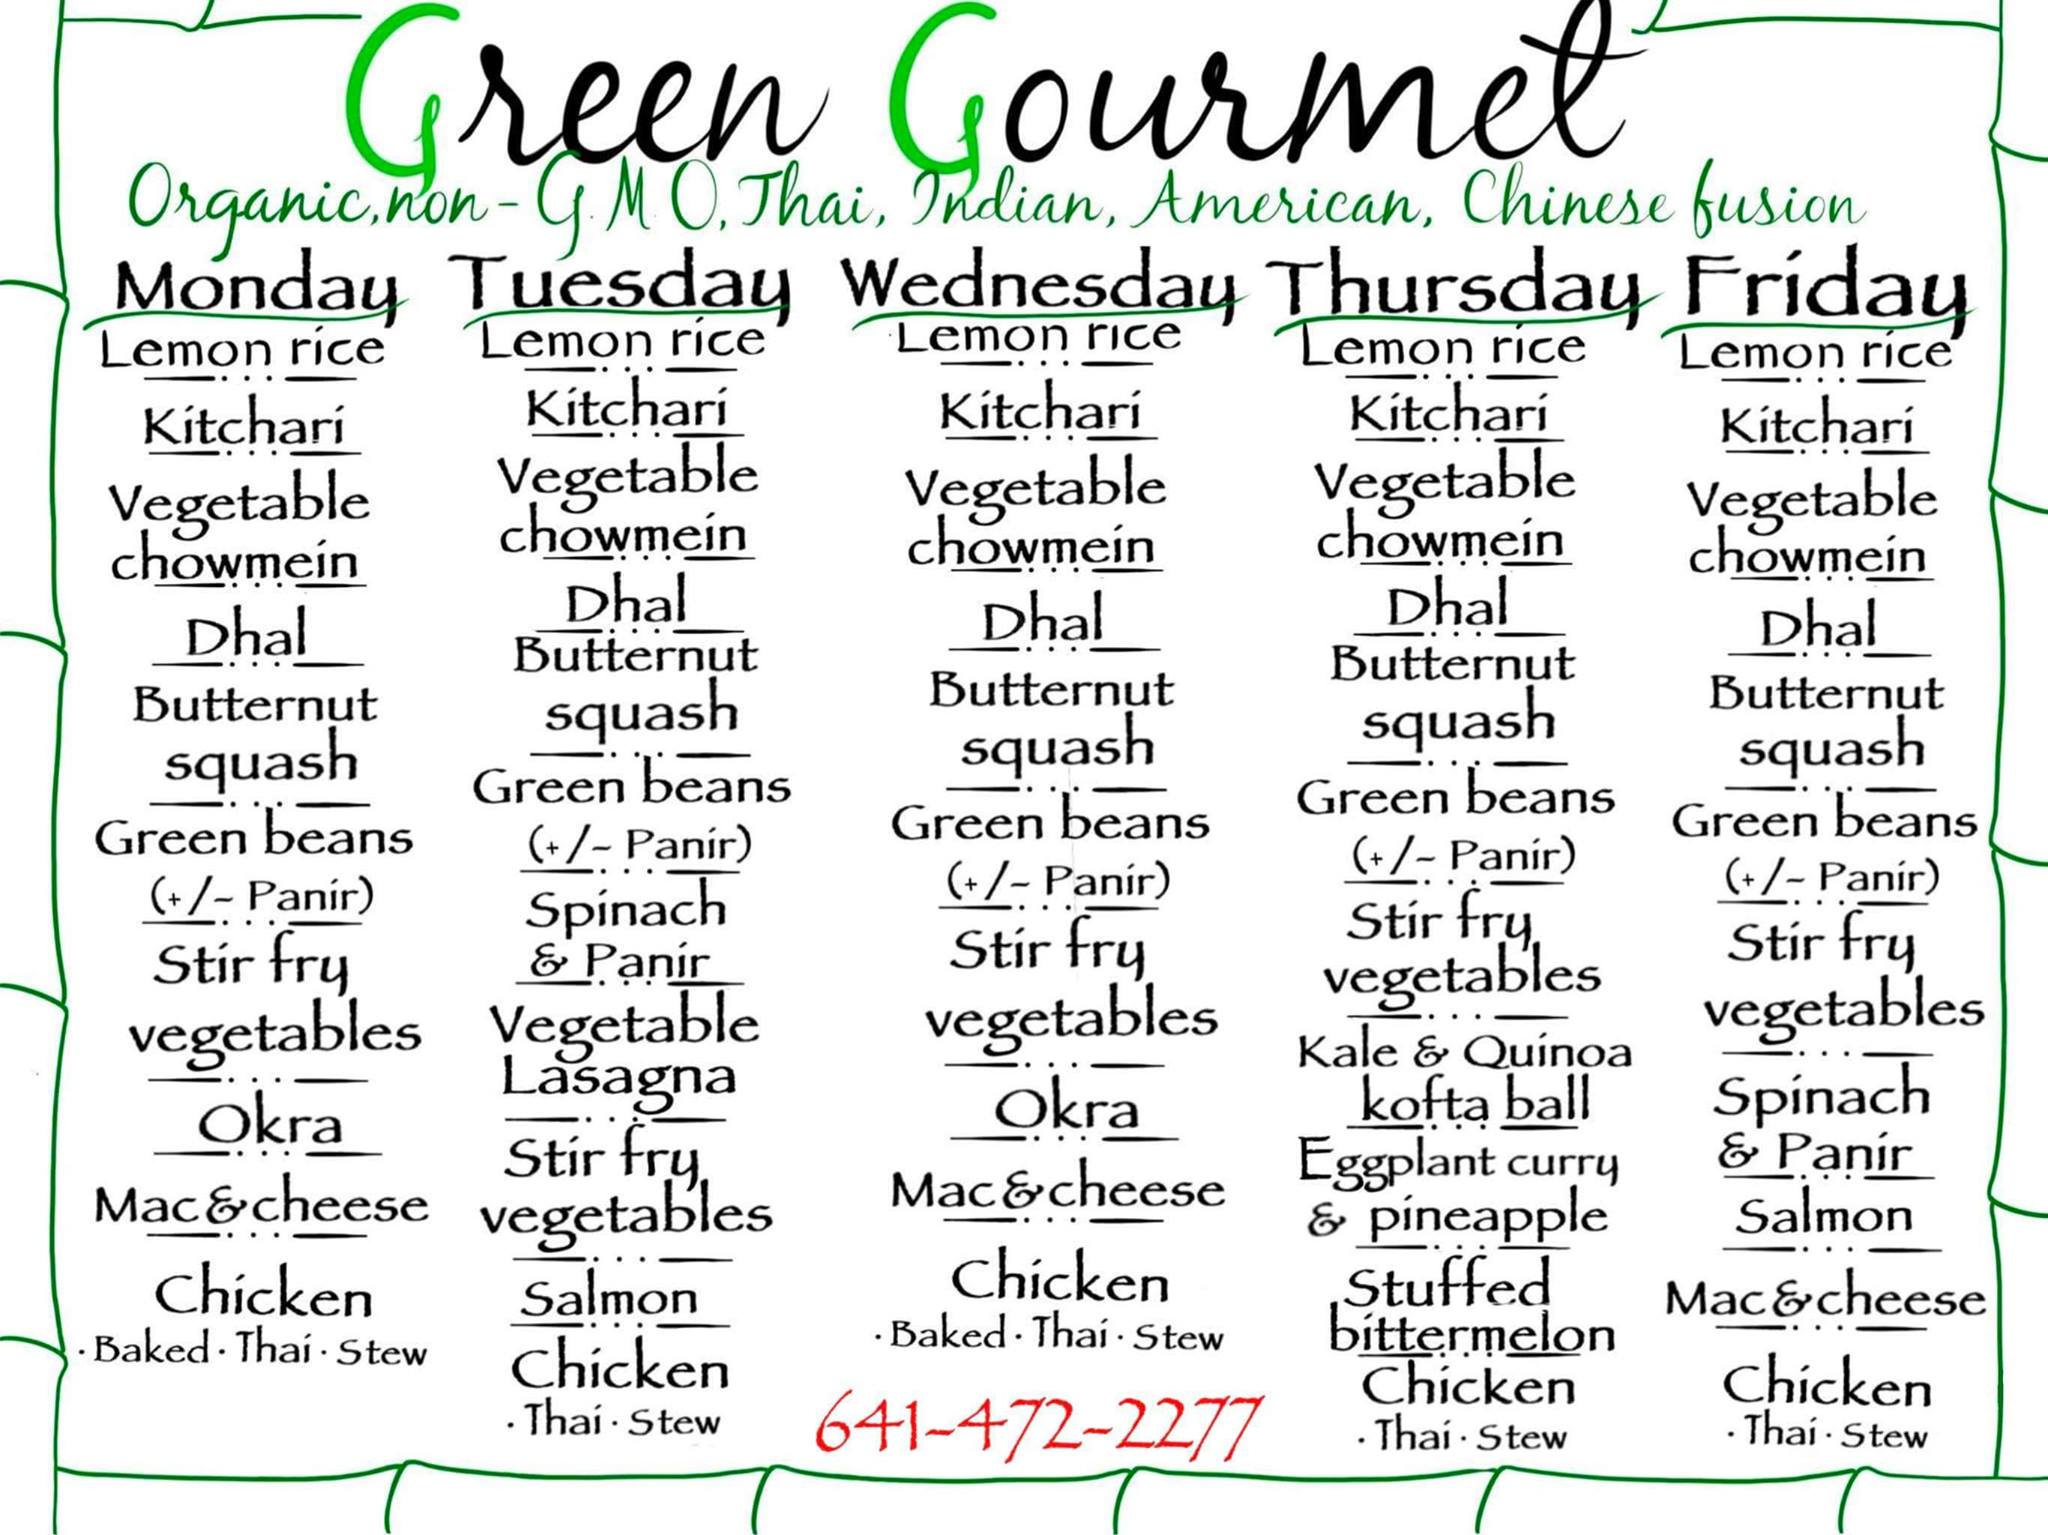 Green Gourmet
Organic, non-GMO, Thai, Indian, American, Chinese fusion
Monday
Lemon rice
Kitchari
Vegetable
chowmein
Dhal
Butternut
squash
Green beans
(+/- Panir)
Stir fry
vegetables
Okra
Mac&cheese
Chicken
·Baked·Thai·Stew
Tuesday
Lemon rice
Kitchari
Vegetable
chowmein
Dhal
Butternut
squash
Green beans
(+/- Panir)
Spinach
& Panir
Vegetable
Lasagna
Stir fry
vegetables
Salmon
Chicken
·Thai·Stew
Wednesday
Lemon rice
Kitchari
Vegetable
chowmein
Dhal
Butternut
squash
Green beans
(+/- Panir)
Stir fry
vegetables
Okra
Mac&cheese
Chicken
·Baked·Thai·Stew
641-472-2277
Thursday
Lemon rice
Kitchari
Vegetable
chowmein
Dhal
Butternut
squash
Green beans
(+/- Panir)
Stir fry
vegetables
Kale & Quinoa
kofta ball
Eggplant curry
& pineapple
Stuffed
bittermelon
Chicken
·Thai·Stew
Friday
Lemon rice
Kitchari
Vegetable
chowmein
Dhal
Butternut
squash
Green beans
(+/- Panir)
Stir fry
vegetables
Spinach
& Panir
Salmon
Mac&cheese
Chicken
·Thai·Stew